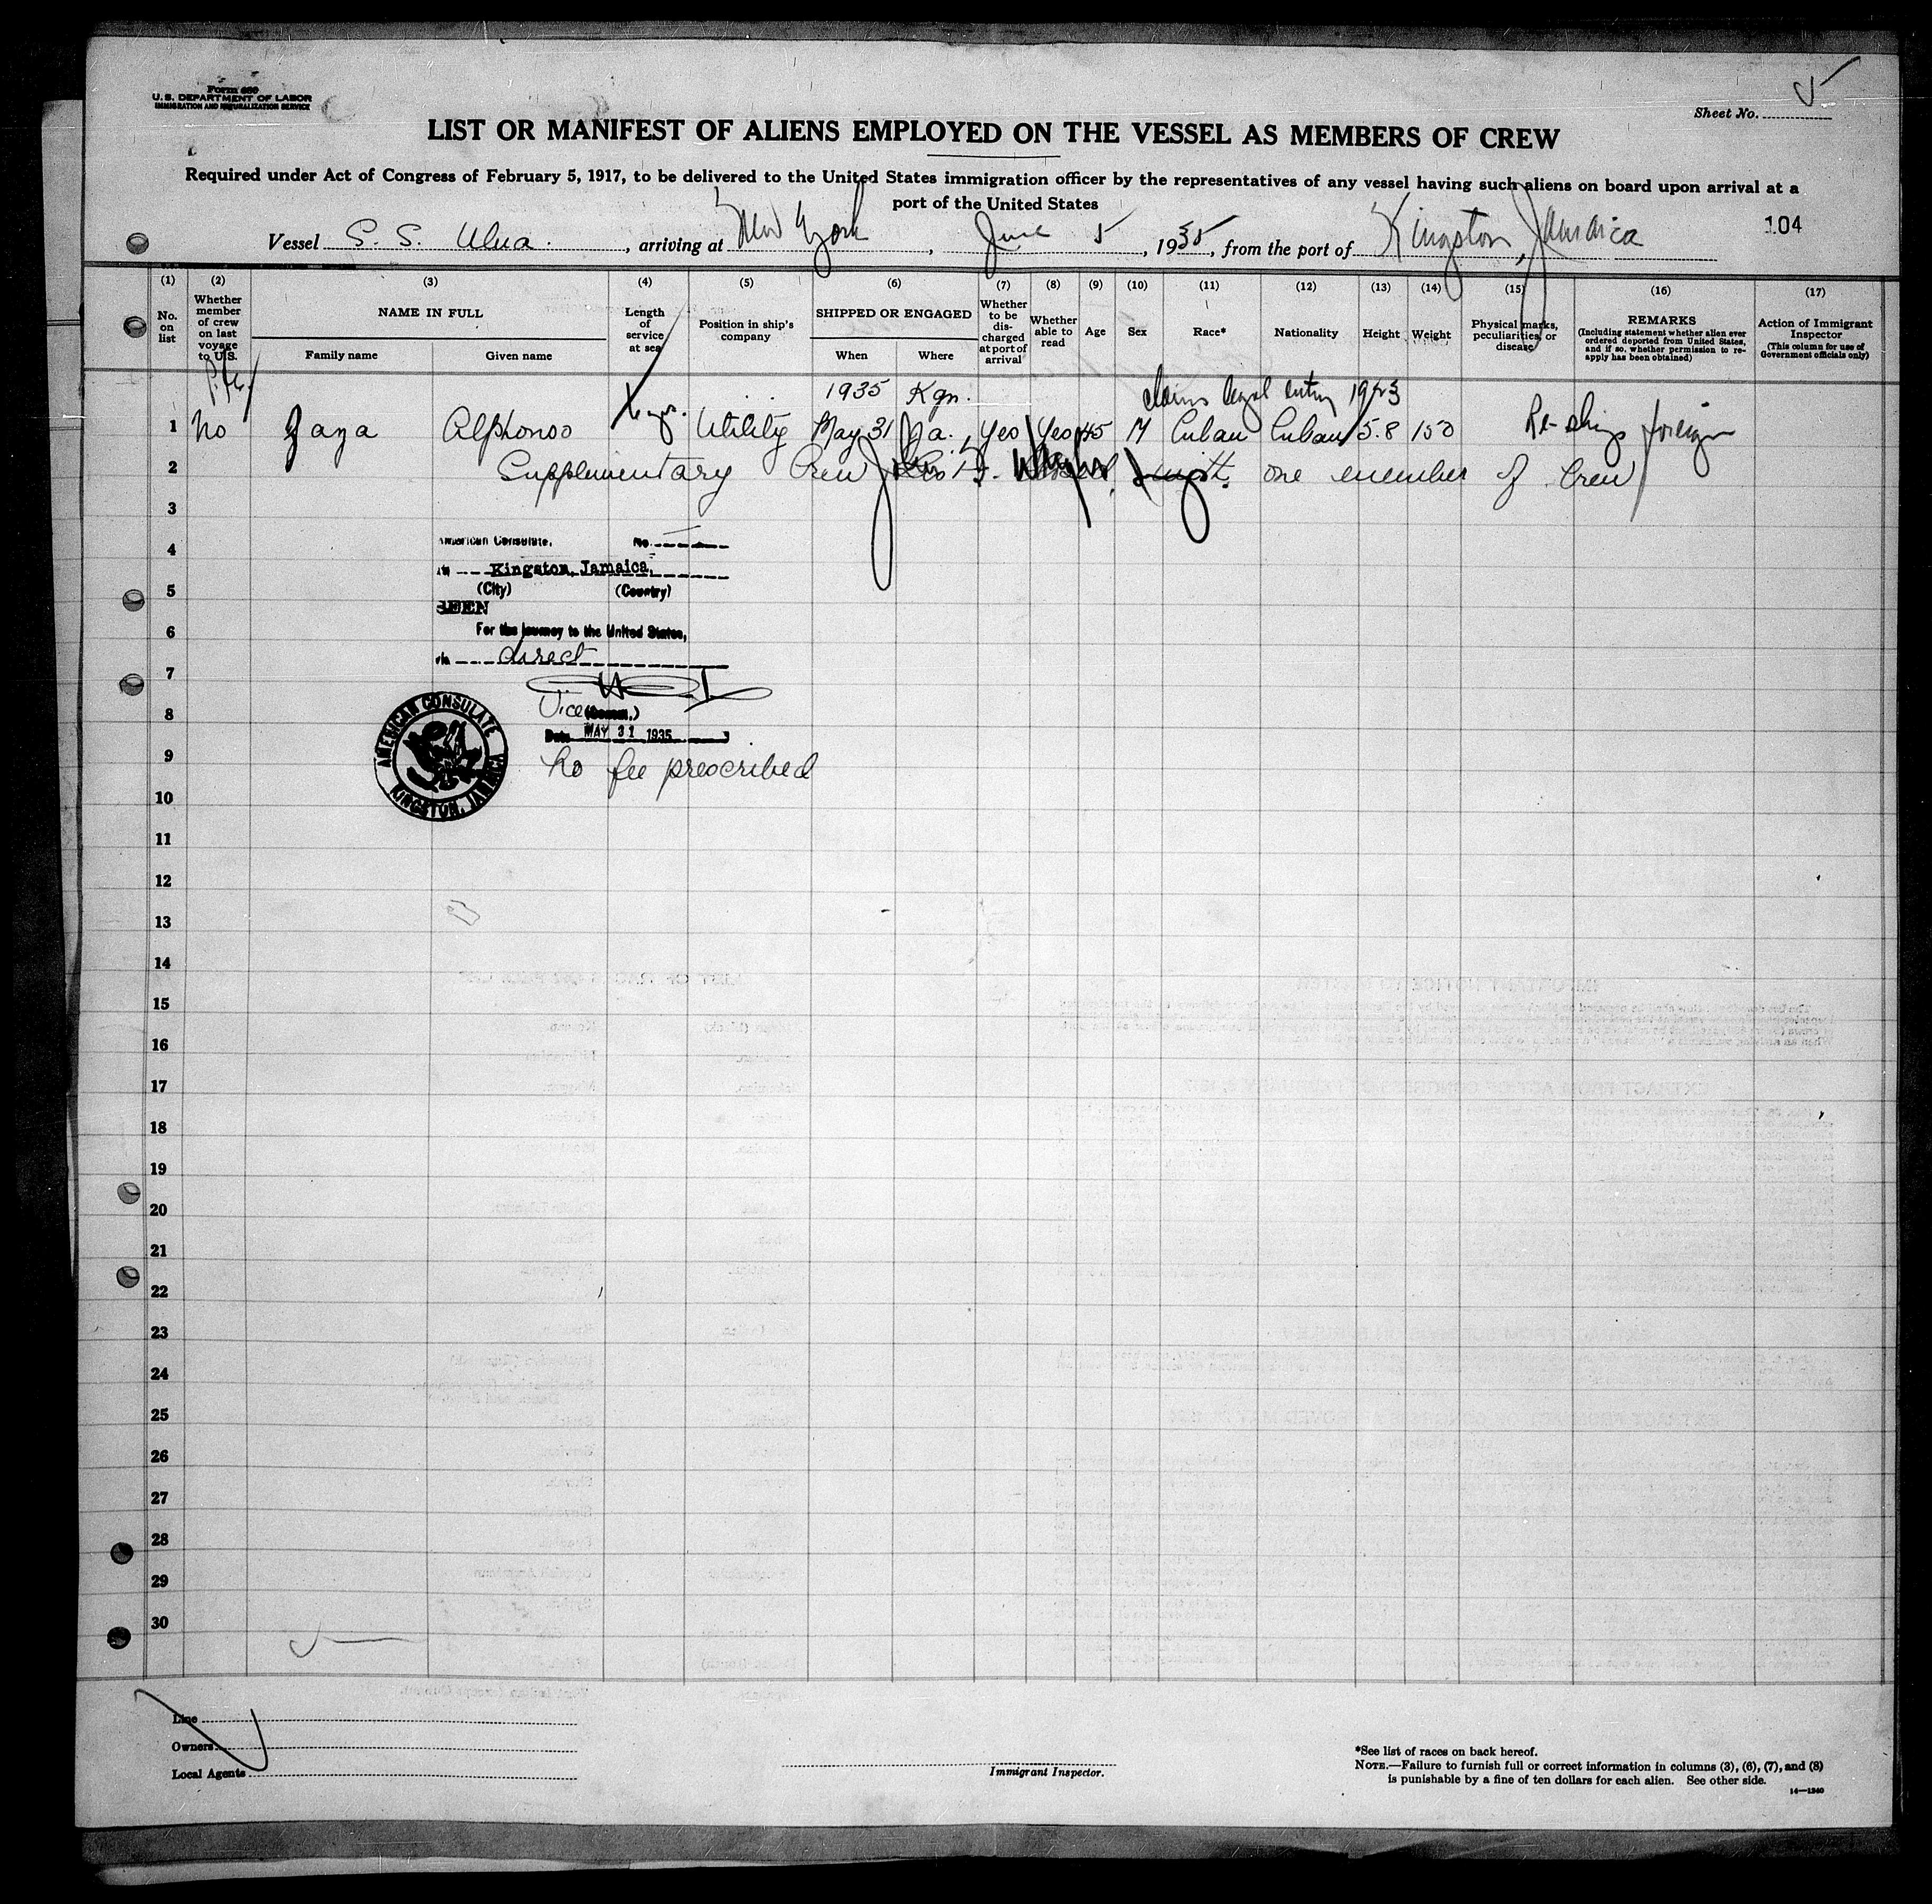 Form 680
U. S. DEPARTMENT OF LABOR
IMMIGRATION AND NATURALIZATION SERVICE
Sheet No.
LIST OR MANIFEST OF ALIENS EMPLOYED ON THE VESSEL AS MEMBERS OF CREW
Required under Act of Congress of February 5, 1917, to be delivered to the United States immigration officer by the representatives of any vessel having such aliens on board upon arrival at a
port of the United States
104
Vessel S. S. Ulua., arriving at New York, June 5, 1935, from the port of Kingston, Jamaica
(1) (2) (3) (4) (5) (6) (7) (8) (9) (10) (11) (12) (13) (14) (15) (16) (17)
No. on list
Whether member of crew on last voyage to U.S.
NAME IN FULL
Family name
Given name
Length of service at sea
Position in ship's company
SHIPPED OR ENGAGED
When
Where
Whether to be discharged at port of arrival
Whether able to read
Age
Sex
Race*
Nationality
Height
Weight
Physical marks, peculiarities, or disease
REMARKS
(Including statement whether alien ever ordered deported from United States, and if so, whether permission to reapply has been obtained)
Action of Immigrant Inspector
(This column for use of Government officials only)
1935 Kgn. claims legal entry 1923
1 No Zaya Alphonso yrs. Utility May 31 Ja. Yes Yes 45 M Cuban Cuban 5.8 150 Re-ships foreign
2 Supplementary Crew one member of Crew
3
4
5
6
7
8
9
10
11
12
13
14
15
16
17
18
19
20
21
22
23
24
25
26
27
28
29
30
American Consulate, No.
At Kingston, Jamaica,
(City) (Country)
SEEN
For the journey to the United States,
via direct
Vice (Consul.)
Date MAY 31 1935
No fee prescribed
AMERICAN CONSULATE
KINGSTON, JAMAICA
Line
Owners
Local Agents
Immigrant Inspector.
*See list of races on back hereof.
NOTE.—Failure to furnish full or correct information in columns (3), (6), (7), and (8)
is punishable by a fine of ten dollars for each alien. See other side.
14—1240